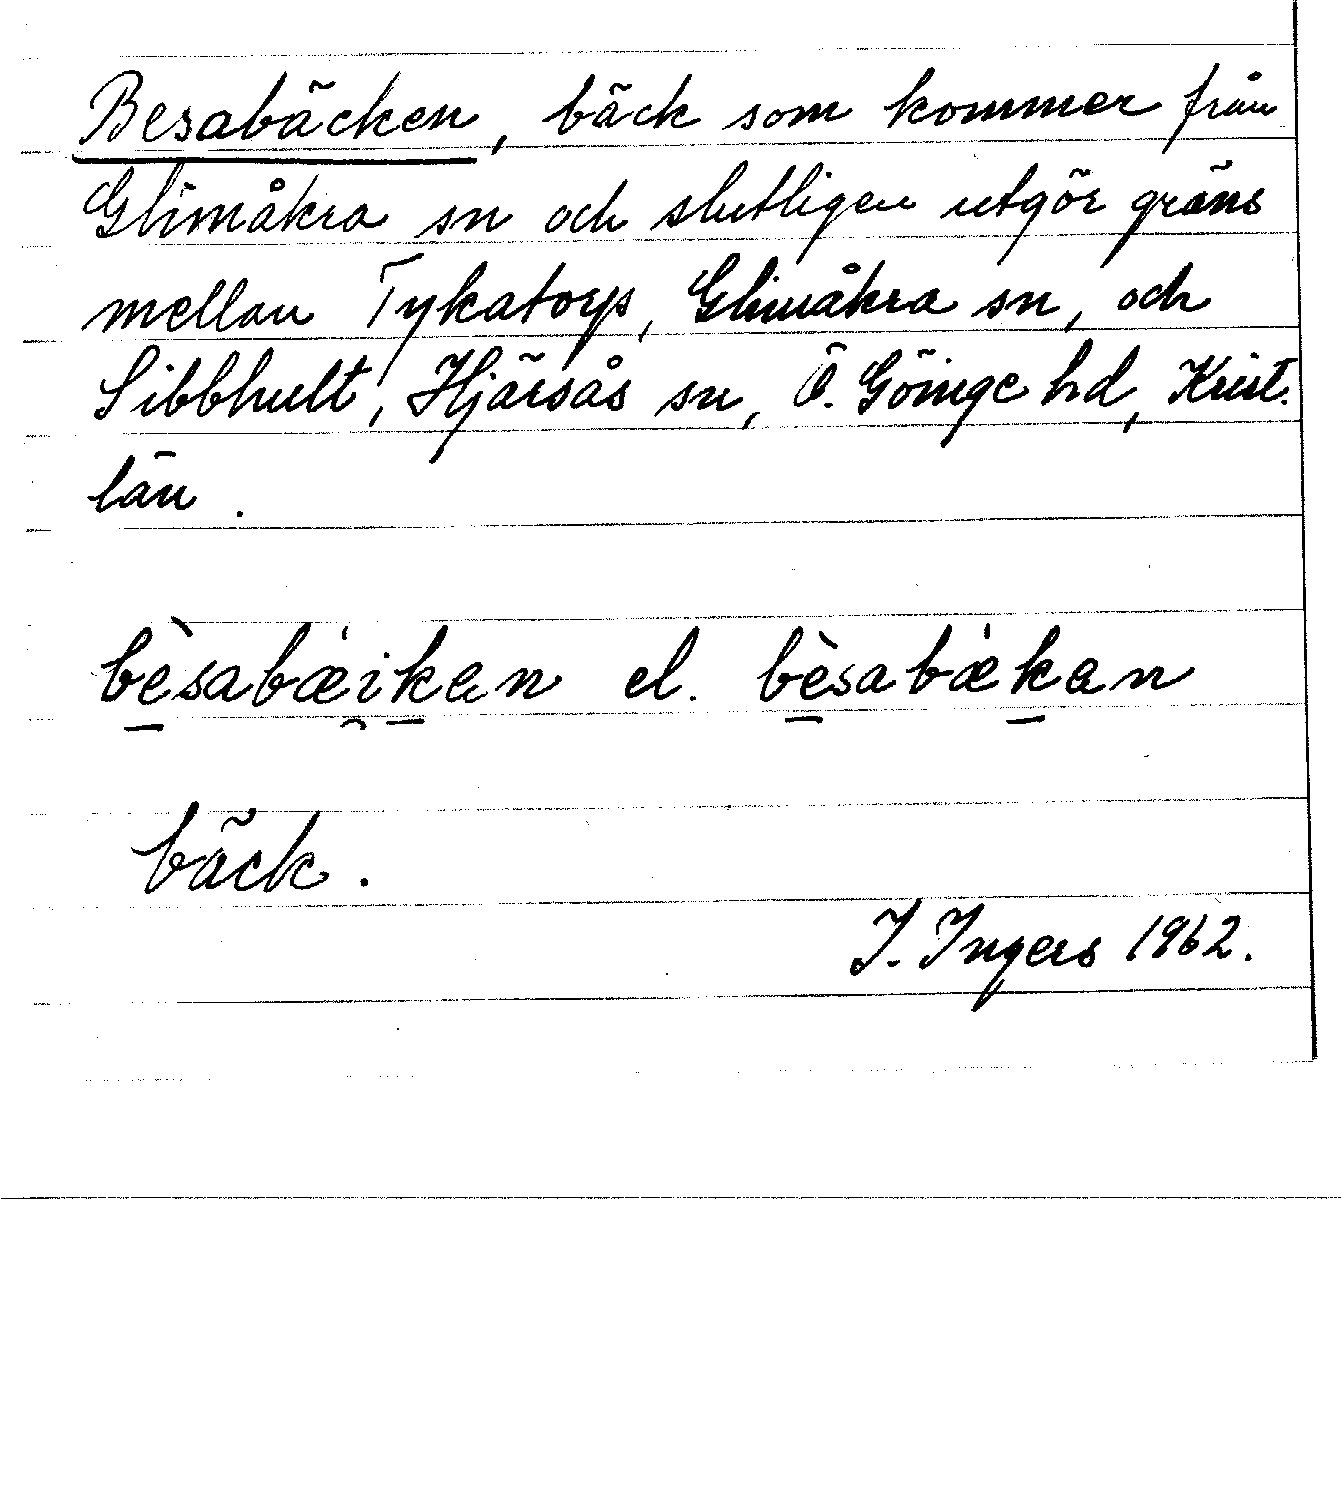 Besabäcken, bäck som kommer från
Glimåkra sn och slutligen utgör gräns
mellan Tykatorp, Glimåkra sn, och
Sibbhult, Hjärsås sn, Ö. Göinge hd, Krist.
län.
bèsabæ̍ikan el. bèsabæ̍kan
bäck.
I. Ingers 1962.